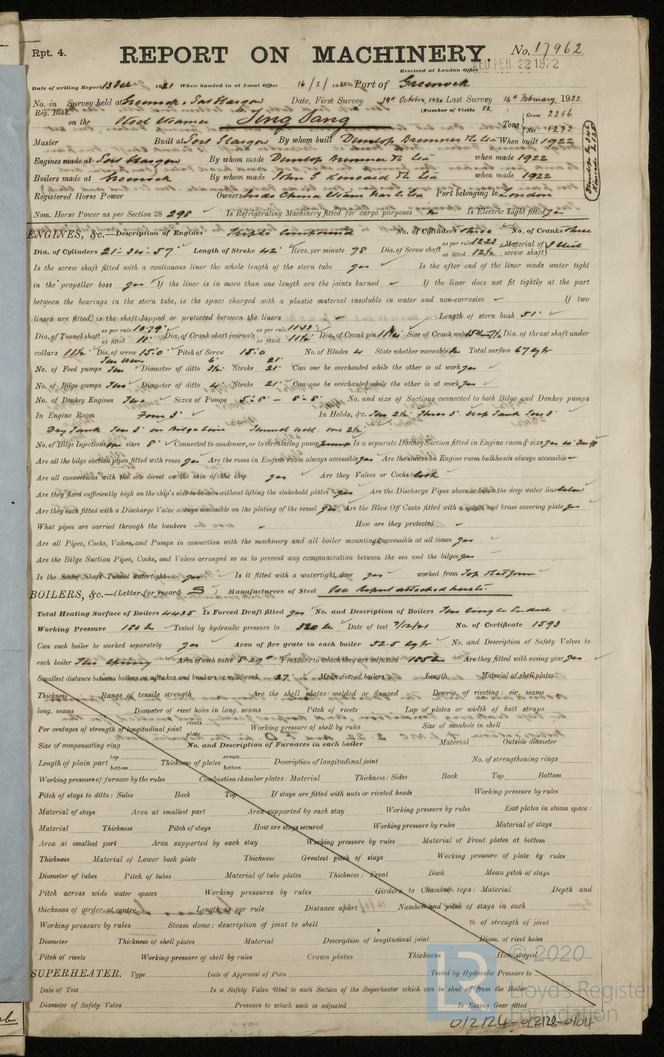 Rpt. 4.
REPORT ON MACHINERY.
No. 17962
Received at London Office
FEB 22 1922
Date of writing Report 19 When handed in at Local Office 16/2/ 1922 Port of Greenock
No. in Survey held at Greenock & Port Glasgow Date, First Survey 19th October, 1920 Last Survey 16th February, 1922
Reg. Book. (Number of Visits 52
on the Steel Steamer "Ting Sang" Tons Gross 2256 Net 1232
Master Built at Port Glasgow By whom built Dunlop Bremner & Co Ltd When built 1922
Engines made at Port Glasgow By whom made Dunlop Bremner & Co Ltd when made 1922
Boilers made at Greenock By whom made John G Kincaid & Co Ltd when made 1922
Registered Horse Power Owners Indo China Steam Nav. Co Ltd Port belonging to London
Nom. Horse Power as per Section 28 298 Is Refrigerating Machinery fitted for cargo purposes no Is Electric Light fitted yes
ENGINES, &c.—Description of Engines Triple Compound No. of Cylinders Three No. of Cranks three
Dia. of Cylinders 21"-34"-57" Length of Stroke 42" Revs. per minute 78 Dia. of Screw shaft as per rule 12.23 as fitted 12½ Material of screw shaft Steel
Is the screw shaft fitted with a continuous liner the whole length of the stern tube yes Is the after end of the liner made water tight
in the propeller boss yes If the liner is in more than one length are the joints burned If the liner does not fit tightly at the part
between the bearings in the stern tube, is the space charged with a plastic material insoluble in water and non-corrosive If two
liners are fitted, is the shaft lapped or protected between the liners Length of stern bush 51"
Dia. of Tunnel shaft as per rule 10.79 as fitted 11" Dia. of Crank shaft journals as per rule as fitted 11½ Dia. of Crank pin 11¾ Size of Crank webs Dia. of thrust shaft under
collars 11½ Dia. of screw 15.0 Pitch of Screw 15.0 No. of Blades 4 State whether moveable no Total surface 67 sq ft
No. of Feed pumps Two Diameter of ditto Stroke 21" Can one be overhauled while the other is at work yes
No. of Bilge pumps Two Diameter of ditto 4" Stroke 21" Can one be overhauled while the other is at work yes
No. of Donkey Engines Two Sizes of Pumps No. and size of Suctions connected to both Bilge and Donkey pumps
In Engine Room Four 3" In Holds, &c. Two 2½" Three 3" Deep Tank Two 3"
Dry Tank Two 3" on Bilge Line Tunnel well one 2½"
No. of Bilge Injections one sizes 8" Connected to condenser, or to circulating pump pump Is a separate Donkey Suction fitted in Engine room & size yes
Are all the bilge suction pipes fitted with roses yes Are the roses in Engine room always accessible yes Are the sluices on Engine room bulkheads always accessible
Are all connections with the sea direct on the skin of the ship yes Are they Valves or Cocks both
Are they fixed sufficiently high on the ship's side to be seen without lifting the stokehold plates yes Are the Discharge Pipes above or below the deep water line below
Are they each fitted with a Discharge Valve always accessible on the plating of the vessel yes Are the Blow Off Cocks fitted with a spigot and brass covering plate yes
What pipes are carried through the bunkers How are they protected
Are all Pipes, Cocks, Valves, and Pumps in connection with the machinery and all boiler mountings accessible at all times yes
Are the Bilge Suction Pipes, Cocks, and Valves arranged so as to prevent any communication between the sea and the bilges yes
Is the Screw Shaft Tunnel watertight yes Is it fitted with a watertight door yes worked from Top Platform
BOILERS, &c.—(Letter for record S) Manufacturers of Steel See Report attached hereto
Total Heating Surface of Boilers 4435 Is Forced Draft fitted yes No. and Description of Boilers Two Single Ended
Working Pressure 180 lbs Tested by hydraulic pressure to 320 lbs Date of test 7/12/21 No. of Certificate 1593
Can each boiler be worked separately yes Area of fire grate in each boiler 52.5 sq ft No. and Description of Safety Valves to
each boiler Two Spring Area of each valve Pressure to which they are adjusted 185 lbs Are they fitted with easing gear yes
Smallest distance between boilers or uptakes and bunkers or woodwork 27" Mean dia. of boilers Length Material of shell plates
Thickness Range of tensile strength Are the shell plates welded or flanged Descrip. of riveting: cir. seams
long. seams Diameter of rivet holes in long. seams Pitch of rivets Lap of plates or width of butt straps
Per centages of strength of longitudinal joint rivets plate Working pressure of shell by rules Size of manhole in shell
Size of compensating ring No. and Description of Furnaces in each boiler Material Outside diameter
Length of plain part top bottom Thickness of plates crown bottom Description of longitudinal joint No. of strengthening rings
Working pressure of furnace by the rules Combustion chamber plates: Material Thickness: Sides Back Top Bottom
Pitch of stays to ditto: Sides Back Top If stays are fitted with nuts or riveted heads Working pressure by rules
Material of stays Area at smallest part Area supported by each stay Working pressure by rules End plates in steam space:
Material Thickness Pitch of stays How are stays secured Working pressure by rules Material of stays
Area at smallest part Area supported by each stay Working pressure by rules Material of Front plates at bottom
Thickness Material of Lower back plate Thickness Greatest pitch of stays Working pressure of plate by rules
Diameter of tubes Pitch of tubes Material of tube plates Thickness: Front Back Mean pitch of stays
Pitch across wide water spaces Working pressures by rules Girders to Chamber tops: Material Depth and
thickness of girder at centre Length as per rule Distance apart Number and pitch of stays in each
Working pressure by rules Steam dome: description of joint to shell % of strength of joint
Diameter Thickness of shell plates Material Description of longitudinal joint Diam. of rivet holes
Pitch of rivets Working pressure of shell by rules Crown plates Thickness How stayed
SUPERHEATER. Type Date of Approval of Plan Tested by Hydraulic Pressure to
Date of Test Is a Safety Valve fitted to each Section of the Superheater which can be shut off from the Boiler
Diameter of Safety Valve Pressure to which each is adjusted Is Easing Gear fitted
© 2020
Lloyd's Register
Foundation